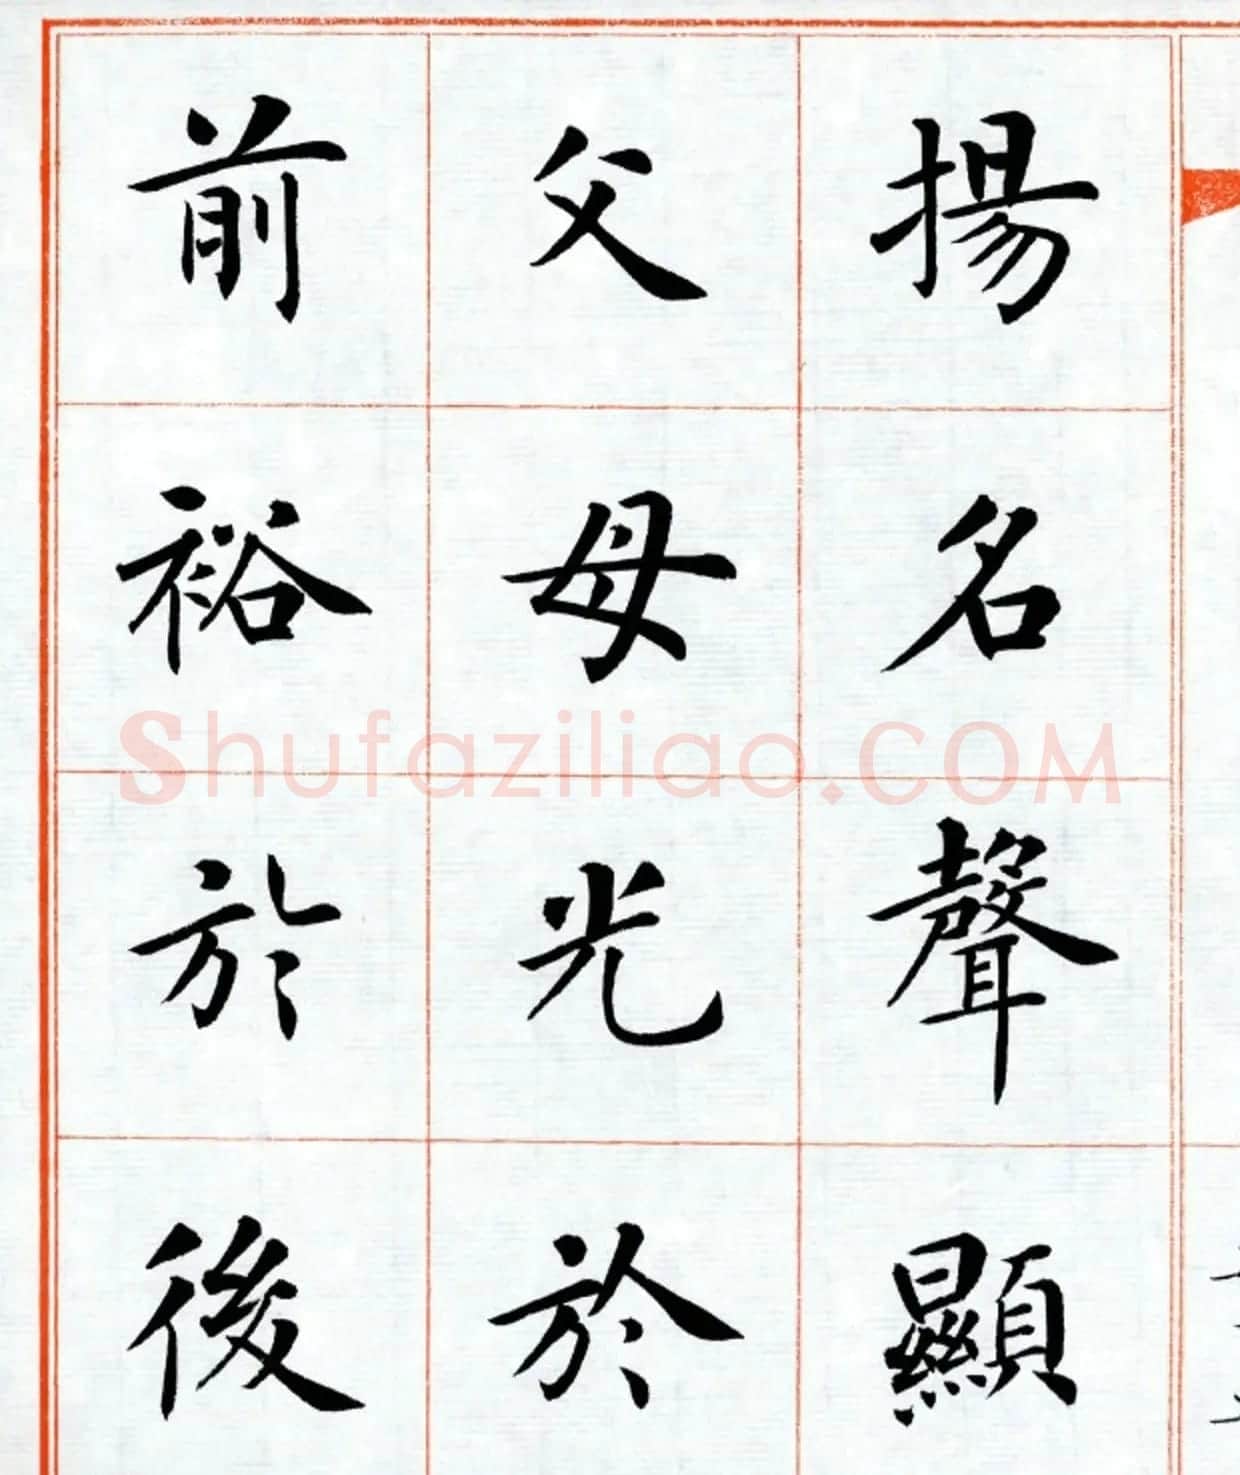 揚名聲顯
父母光於
前裕於後
Shufaziliao.COM